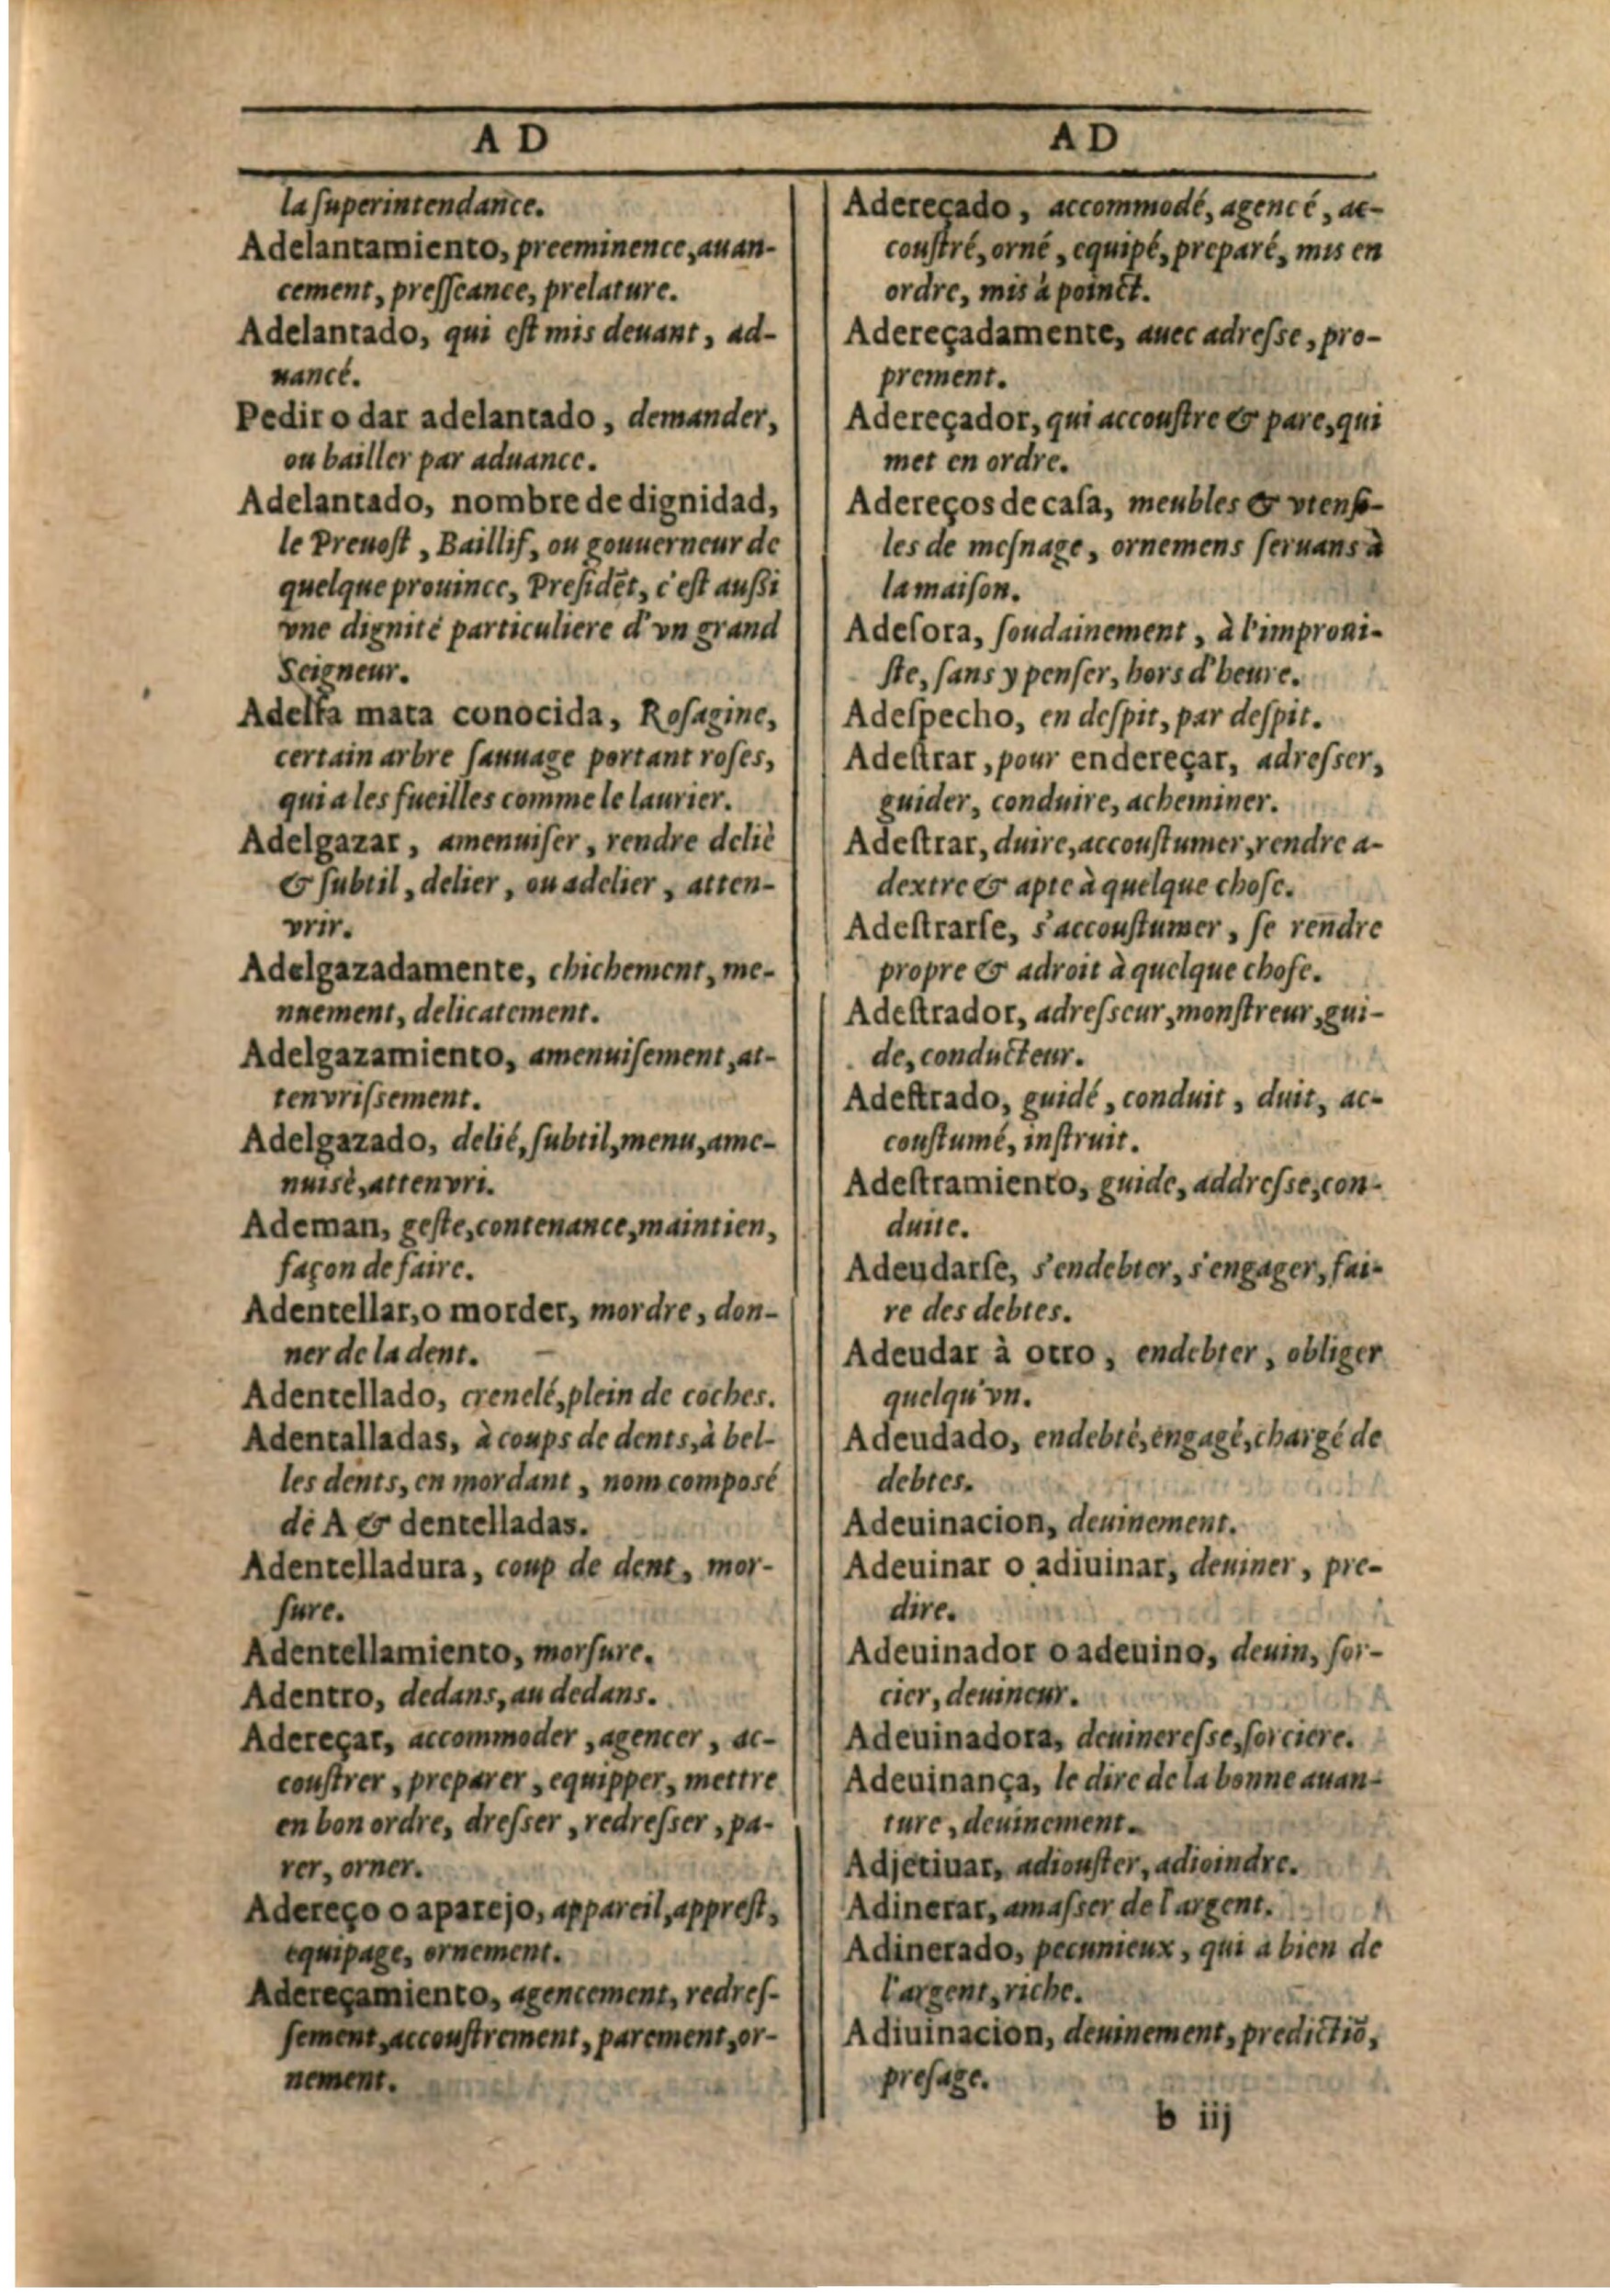 A D
la ſuperintendance.
Adelantamiento, preeminence, auan-
cement, preſſeance, prelature.
Adelantado, qui eſt mis deuant, ad-
uancé.
Pedir o dar adelantado, demander,
ou bailler par aduance.
Adelantado, nombre de dignidad,
le Preuoſt, Baillif, ou gouuerneur de
quelque prouince, Preſidẽt, c'eſt auſſi
vne dignité particuliere d'vn grand
Seigneur.
Adelfa mata conocida, Roſagine,
certain arbre ſauuage portant roſes,
qui a les fueilles comme le laurier.
Adelgazar, amenuiſer, rendre deliè
& ſubtil, delier, ou adelier, atten-
vrir.
Adelgazadamente, chichement, me-
nuement, delicatement.
Adelgazamiento, amenuiſement, at-
tenvriſſement.
Adelgazado, delié, ſubtil, menu, ame-
nuisè, attenvri.
Ademan, geſte, contenance, maintien,
façon de faire.
Adentellar, o morder, mordre, don-
ner de la dent.
Adentellado, crenelé, plein de coches.
Adentalladas, à coups de dents, à bel-
les dents, en mordant, nom composé
de A & dentelladas.
Adentelladura, coup de dent, mor-
ſure.
Adentellamiento, morſure.
Adentro, dedans, au dedans.
Adereçar, accommoder, agencer, ac-
couſtrer, preparer, equipper, mettre
en bon ordre, dreſſer, redreſſer, pa-
rer, orner.
Adereço o aparejo, appareil, appreſt,
equipage, ornement.
Adereçamiento, agencement, redreſ-
ſement, accouſtrement, parement, or-
nement.
A D
Adereçado, accommodé, agencé, ac-
couſtré, orné, equipé, preparé, mis en
ordre, mis à poinct.
Adereçadamente, auec adreſſe, pro-
prement.
Adereçador, qui accouſtre & pare, qui
met en ordre.
Adereços de caſa, meubles & vtenſi-
les de meſnage, ornemens ſeruans à
la maiſon.
Adeſora, ſoudainement, à l'improui-
ſte, ſans y penſer, hors d'heure.
Adeſpecho, en deſpit, par deſpit.
Adeſtrar, pour endereçar, adreſſer,
guider, conduire, acheminer.
Adeſtrar, duire, accouſtumer, rendre a-
dextre & apte à quelque choſe.
Adeſtrarſe, s'accouſtumer, ſe rendre
propre & adroit à quelque choſe.
Adeſtrador, adreſſeur, monſtreur, gui-
de, conducteur.
Adeſtrado, guidé, conduit, duit, ac-
couſtumé, inſtruit.
Adeſtramiento, guide, addreſſe, con-
duite.
Adeudarſe, s'endebter, s'engager, fai-
re des debtes.
Adeudar à otro, endebter, obliger
quelqu'vn.
Adeudado, endebtè, engagé, chargé de
debtes.
Adeuinacion, deuinement.
Adeuinar o adiuinar, deuiner, pre-
dire.
Adeuinador o adeuino, deuin, ſor-
cier, deuineur.
Adeuinadora, deuinereſſe, ſorciere.
Adeuinança, le dire de la bonne auan-
ture, deuinement.
Adjetiuar, adiouſter, adioindre.
Adinerar, amaſſer de l'argent.
Adinerado, pecunieux, qui a bien de
l'argent, riche.
Adiuinacion, deuinement, predictiõ,
preſage.
b iij